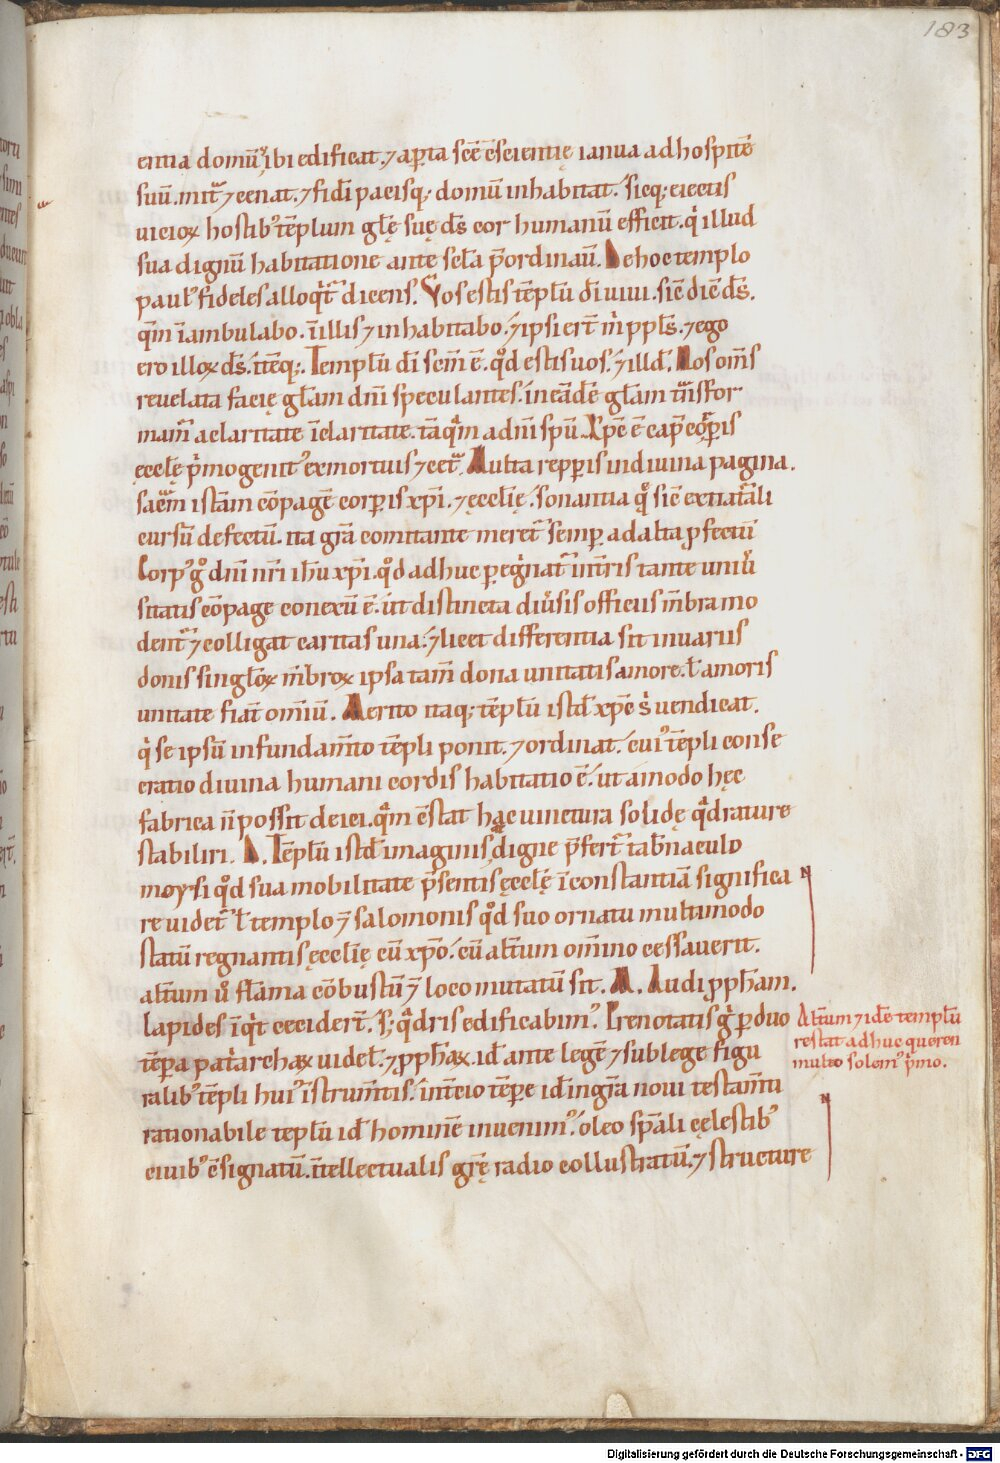 183
entia domū ibi edificat. ⁊ aꝑta scē c̄scientię ianua ad hospitē
suū. mit̄t ⁊ cenat. ⁊ fidī pacisq; domū inhabitat. sicq; eiectis
uicioꝝ hostibꝰ tēplum glę̄ suę ds̄ cor humanū efficit. q̇ illud
sua dignū habitatione ante scl̄a p̄ordinau̅. De hoc templo
paulꝰ fideles alloq̇t̄ dicens. Vos estis tēplū dī uiui. sic̄ dic̄ ds̄.
qm̄ īambulabo. ī illis ⁊ inhabitabo. ⁊ ipsi ert̄ m̊ ppls̄. ⁊ ego
ero illoꝝ ds̄. itēq;. Templū dī scm̄ ē. qd̄ estis uos. ⁊ illd̄. Nos oms̄
reuelata facię glām dnī speculantes. in eādē glām tn̄sfor
mam̄ a claritate ī claritatē. tāqm̄ a dnī spū. Xp̄c ē cap̄ corꝑis
ęcclę̄ p̄mogenitꝰ ex mortuis ⁊ cet̄. Multa repperis in diuina pagina.
sacm̄ istam cōpagē corꝑis xp̄i. ⁊ ęcclīę. sonantia q̊ sic̄ ex natali
cursū defectū. ita grā comitante meret̄ semꝑ ad alta ꝓfectū
Corpꝰ g̊ dnī nr̄i ih̄u xp̄i. qd̄ adhuc ꝑegnat̄ in tr̄is tante uniū
sitatis cōpage conexū ē. ut distincta diūsis officiis m̄bra mo
dent̄ ⁊ colligat caritas una. ⁊ licet differentia sit in uariis
donis singloꝝ m̄broꝝ ipsa tam̄ dona unitatis amore. ł amoris
unitate fiāt omīū. Merito itaq; tēplū istd̄ xp̄c s̊ uendicat.
q̇ se ipsū in fundam̄to tēpli ponit. ⁊ ordinat. cuiꝰ tēpli conse
cratio diuina humani cordis habitatio ē. ut amodo hęc
fabrica n̄ possit deici. qm̄ c̄stat hāc uinctura solidę qdrature
stabiliri. D. Tēplū istd̄ imaginis digne p̄fert̄ tab̄naculo
moysi qd̄ sua mobilitate p̄sentis ęcclę̄ īconstantiā significa
re uidet̄ ł templo ⁊ salomonis qd̄ suo ornatu multimodo
statū regnantis ęcclīę cū xp̄o. cū alt̄um omīno cessauerit.
alt̄um ū̊ flāma cōbustū ⁊ loco mutatū sit. M. Audi ꝓph̄am.
Lapides īqt̄ cecidert̄. s; qdris edificabimꝰ. Prenotatis g̊ ꝑ duo
tēꝑa pat̄archaꝝ uidel̄. ⁊ ꝓph̄aꝝ. id̄ ante legē ⁊ sub lege figu
ralibꝰ tēpli huiꝰ īstrum̄tis. in t̄cio tēꝑe id̄ in gr̄a noui testam̄ti
rationabile teplū id̄ hominē inuenimꝰ. oleo sp̄ali cęlestibꝰ
ciuibꝰ c̄signatū. ītellectualis grę̄ radio collustratū. ⁊ structure
Alt̄um ⁊ idē templū
restat adhuc queren
multo solemꝰ p̄mo.
Digitalisierung gefördert durch die Deutsche Forschungsgemeinschaft - DFG